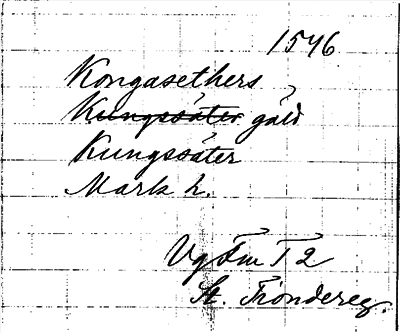 1546
Kongasethers
Kungssäter gäld
Kungssäter
Mark h.
Vg Fm T 2
St. Tiondereg.